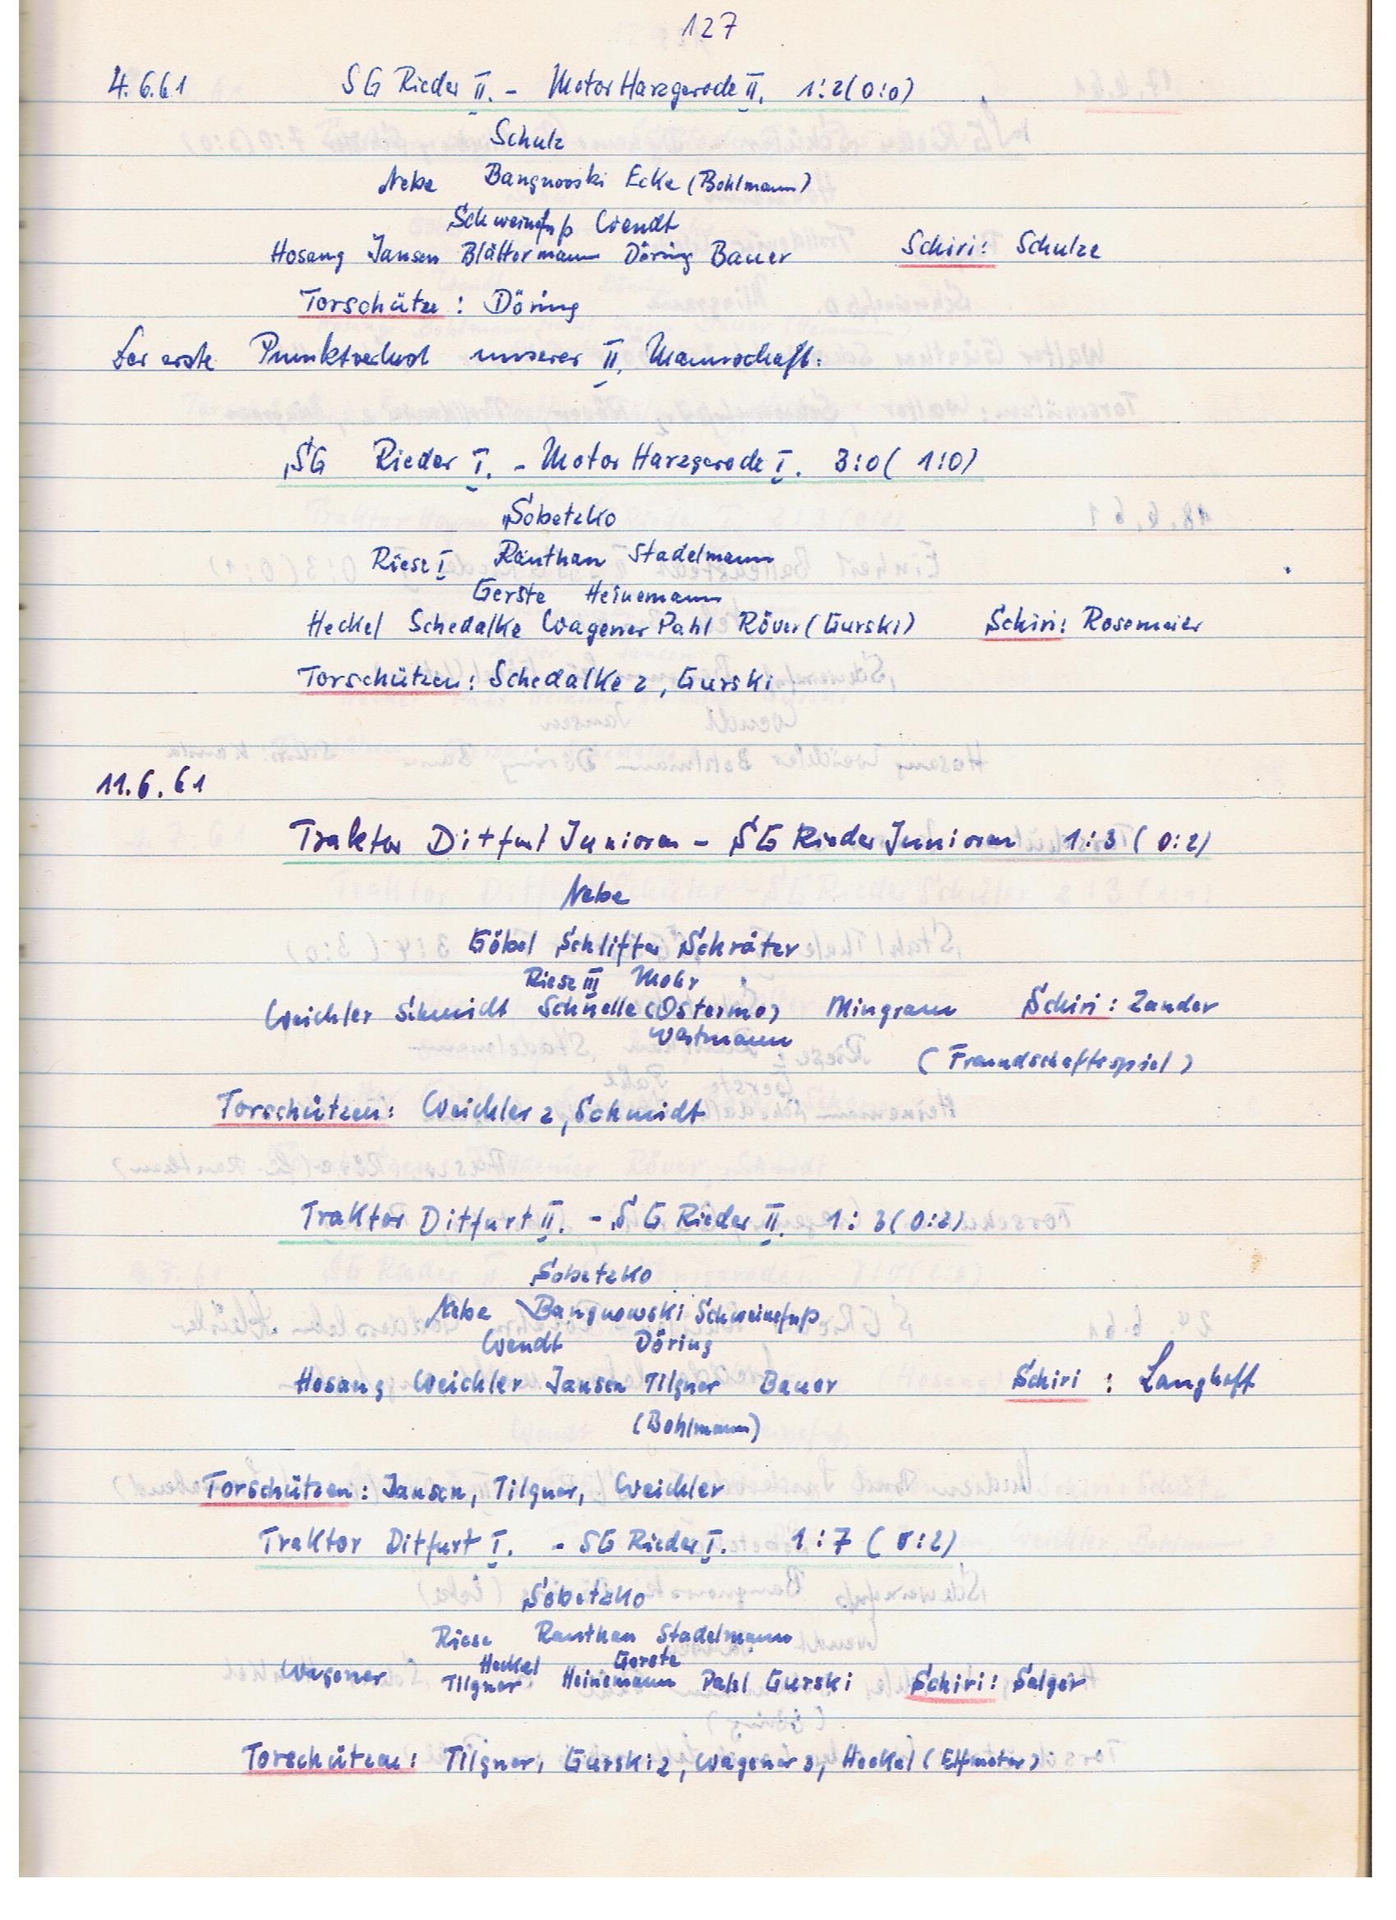 127
4.6.61 SG Rieder II. - Motor Harzgerode II. 1:2 (0:0)
Schulz
Nebe Bangnowski Ecke (Bohlmann)
Schweinefuß Wendt
Hosang Jansen Blättermann Döring Bauer Schiri: Schulze
Torschütze: Döring
Der erste Punktverlust unserer II. Mannschaft.
SG Rieder I. - Motor Harzgerode I. 3:0 (1:0)
Sobetzko
Riese I Ranthan Stadelmann
Gerste Heinemann
Heckel Schedalke Wagener Pahl Röver (Gurski) Schiri: Rosemeier
Torschützen: Schedalke 2, Gurski
11.6.61
Traktor Ditfurt Junioren - SG Rieder Junioren 1:3 (0:2)
Nebe
Göbel Schlifter Schröter
Riese III Mohr
Weichler Schmidt Schnelle (Ostermo) Mingram Schiri: Zander
Westmann
(Freundschaftsspiel)
Torschützen: Weichler 2, Schmidt
Traktor Ditfurt II. - SG Rieder II. 1:3 (0:2)
Sobetzko
Nebe Bangnowski Schweinefuß
Wendt Döring
Hosang Weichler Jansen Tilgner Bauer Schiri: Langhoff
(Bohlmann)
Torschützen: Jansen, Tilgner, Weichler
Traktor Ditfurt I. - SG Rieder I. 1:7 (0:2)
Sobetzko
Riese Ranthan Stadelmann
Heckel Gerste
Wagener Tilgner Heinemann Pahl Gurski Schiri: Salger
Torschützen: Tilgner, Gurski 2, Wagener 3, Heckel (Elfmeter)